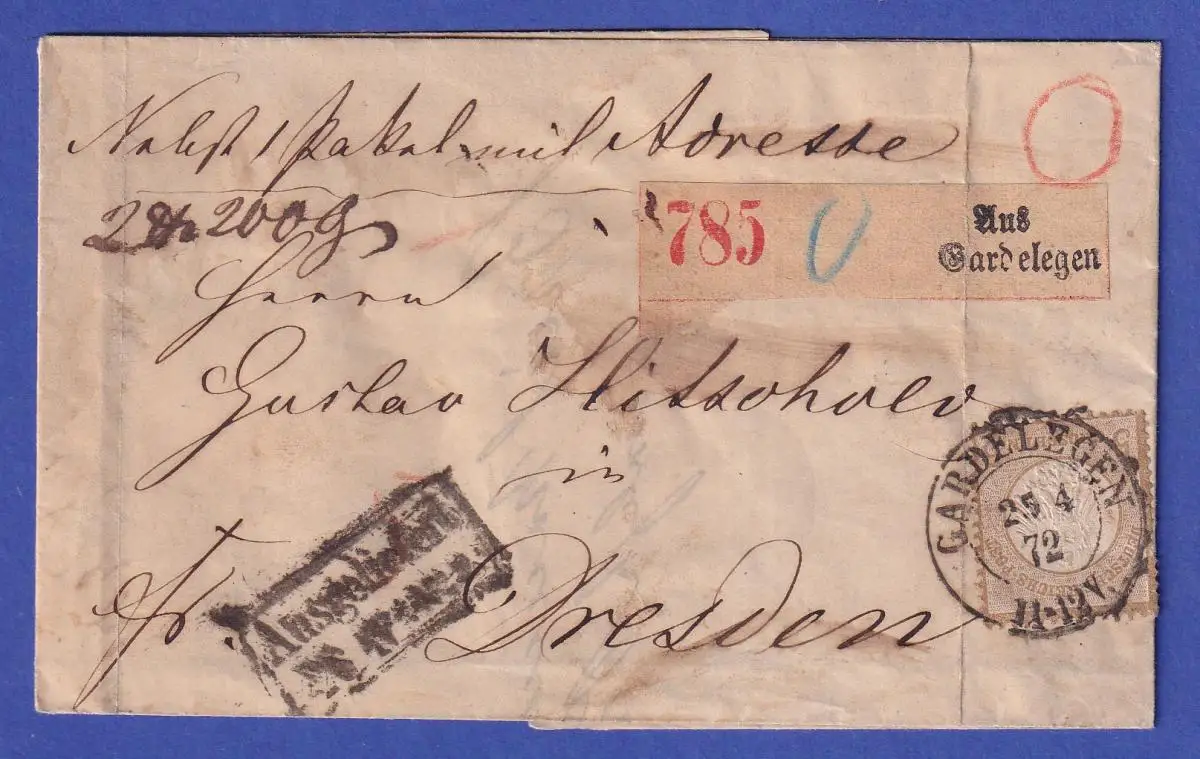 Nebst 1 Paket mit Adresse
2 200 g
785 0 Aus
Gardelegen
Herrn
Gustav
in
fr. Dresden
Ausgeliefert
GARDELEGEN
25 4
72
11-12 V.